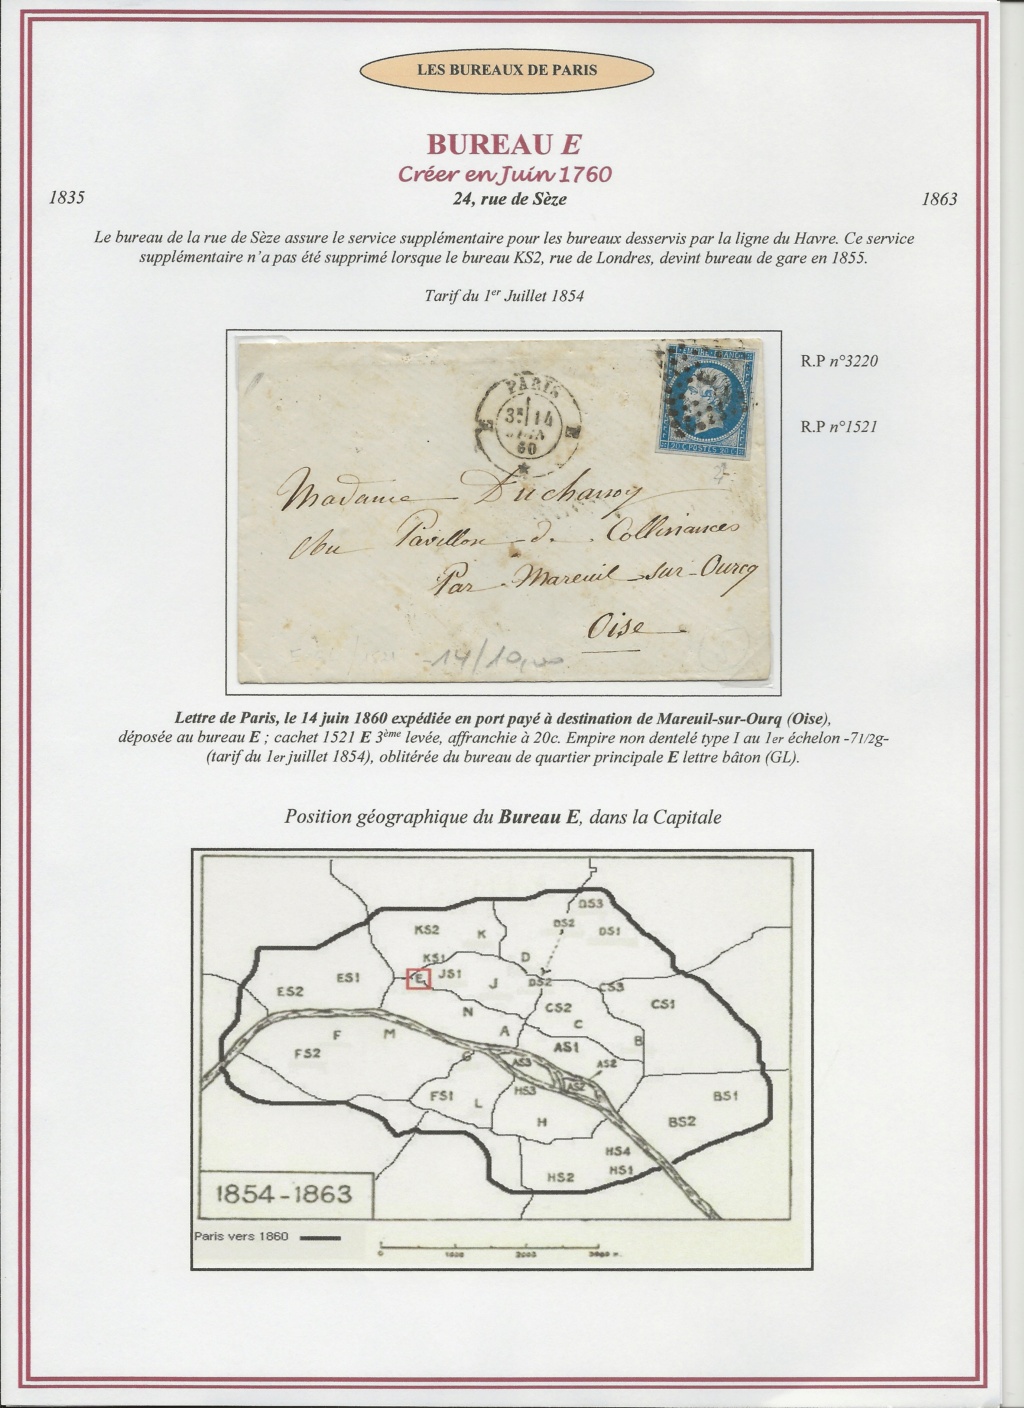 LES BUREAUX DE PARIS
BUREAU E
Créer en Juin 1760
24, rue de Sèze
1835
1863
Le bureau de la rue de Sèze assure le service supplémentaire pour les bureaux desservis par la ligne du Havre. Ce service
supplémentaire n'a pas été supprimé lorsque le bureau KS2, rue de Londres, devint bureau de gare en 1855.
Tarif du 1er Juillet 1854
R.P n°3220
R.P n°1521
PARIS
3E 14
60
E E
20 C POSTES 20 C
Madame Ducharroy
au Pavillon de Collinances
Par Mareuil-sur-Ourcq
Oise
14/10,00
Lettre de Paris, le 14 juin 1860 expédiée en port payé à destination de Mareuil-sur-Ourq (Oise),
déposée au bureau E ; cachet 1521 E 3ème levée, affranchie à 20c. Empire non dentelé type I au 1er échelon -71/2g-
(tarif du 1er juillet 1854), oblitérée du bureau de quartier principale E lettre bâton (GL).
Position géographique du Bureau E, dans la Capitale
DS3
KS2 K DS2 DS1
KS1 D
ES1 E JS1 J DS2
ES2 CS3
N CS2 CS1
F M A C B
FS2 AS1
G AS3 AS2
FS1 HS3 AS2
L BS1
H BS2
HS4
HS2 HS1
1854-1863
Paris vers 1860
0 1000 2000 3000 m.